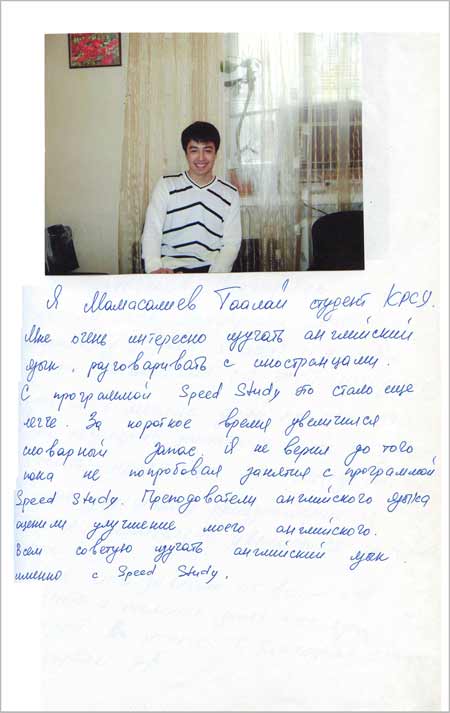 Я Мамасалиев Таалай студент КРСУ.
Мне очень интересно изучать английский
язык, разговаривать с иностранцами.
С программой Speed Study это стало еще
легче. За короткое время увеличился
словарный запас. Я не верил до того
пока не попробовал занятия с программой
Speed Study. Преподователи английского языка
оценили улучшение моего английского.
Всем советую изучать английский язык
именно с Speed Study.